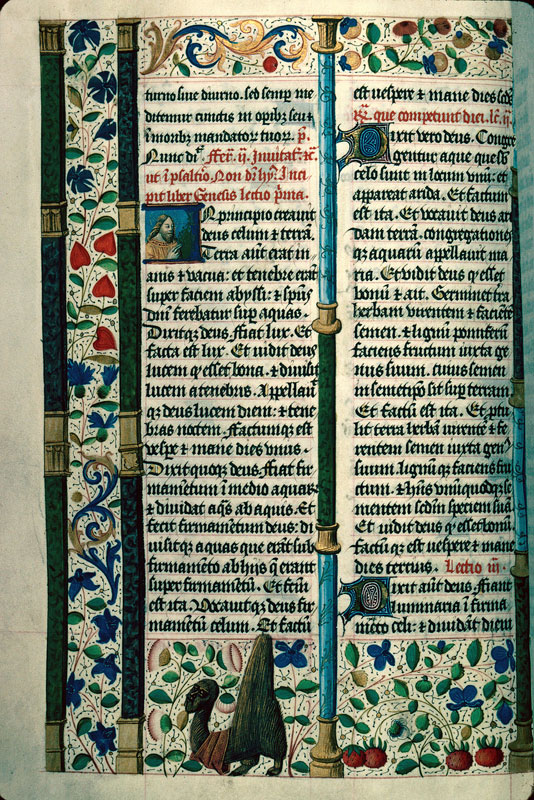 turno siue diurno. sed semp̲ me
ditemur cunctis in op̲ibꝫ seu
p̃monibꝫ mandatoꝝ tuoꝝ. p̃.
Nunc diͥ.
ut ĩ psalt̃io Non dĩ hỹ. Inci
pit liber Genesis lectio p̃ma.
IN principio creauit
deus celum ⁊ terrã.
Terra aũt erat in
anis ⁊ vacua: ⁊ tenebre erãt
super faciem abyssi: ⁊ sp̃us
dñi ferebatur sup aquas.
Dixitqꝫ deus. ffiat lux. Et
facta est lux. Et uidit deus
lucem qͥ esset bona. ⁊ diuisit
lucem a tenebris. Appellauit
qꝫ deus lucem diem: ⁊ tene
bras noctem. ffactumqꝫ est
vesp̲e ⁊ mane dies vnus.
Dixit quoqꝫ deus. ffiat fir
mamẽtum ĩ medio aquaꝝ
⁊ diuidat aq̃s ab aquis. Et
fecit firmamẽtum deus: di
uisitqꝫ aquas que erãt sub
firmamẽto ab hijs que erant
super firmamẽtũ. Et fc̃m
est ita. Vocauitqꝫ deus fir
mamẽtũ celum. Et factũ
est vespere ⁊ mane dies secđ
que competunt diei. lc̃. ij.
Dixit vero deus. Congre
gentur aque que sub
celo sunt in locum vnũ: et
appareat arida. Et factum
est ita. Et vocauit deus ari
dam terrã. congregationes
qꝫ aquarũ appellauit ma
ria. Et vidit deus qͥ esset
bonũ ⁊ ait. Germinet t̃ra
herbam virentem ⁊ faciẽte
semen. ⁊ lignũ pomiferũ
faciens fructum iuxta ge
nus suum. cuius semen
in semetip̃o sit sup̲ terram
Et factũ est ita. Et p̲tu
lit terra herbã uirentẽ ⁊ fe
rentem semen iuxta genꝰ
suum. lignũ qꝫ faciens fru
ctum. ⁊ h̃ns vnũquodqꝫ se
mentem sedm̃ speciem suã
Et uidit deus qͥ esset bonũ.
factũ qꝫ est uespere ⁊ mane
dies tercius. Lectio iij.
Dixit aũt deus. ffiant
luminaria ĩ firma
mẽto celi: ⁊ diuidãt diem